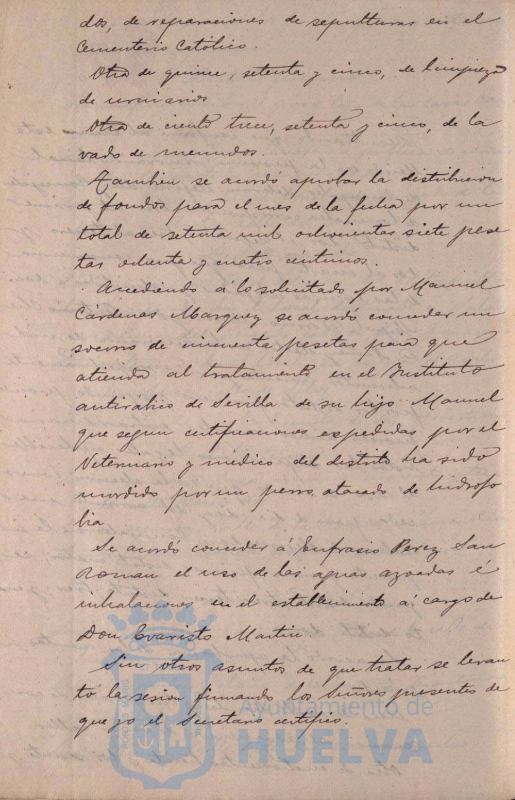 dos, de reparaciones de sepulturas en el
Cementerio Católico.
Otra de quince, setenta y cinco, de limpieza
de urinarios
Otra de ciento trece, setenta y cinco, de la
vado de menudos.
Tambien se acordó aprobar la distribucion
de fondos para el mes de la fecha por un
total de setenta mil ochocientas siete pese
tas ochenta y cuatro centimos.
Accediendo á lo solicitado por Manuel
Cárdenas Marquez se acordó conceder un
socorro de cincuenta pesetas para que
atienda al tratamiento en el Instituto
antirábico de Sevilla de su hijo Manuel
que segun certificaciones espedidas por el
Veterinario y médico del distrito ha sido
mordido por un perro atacado de hidrofo
bia
Se acordó conceder á Eufrasio Perez San
Roman el uso de las aguas azoadas é
inhalaciones en el establecimiento á cargo de
Don Evaristo Martin.
Sin otros asuntos de que tratar se levan
tó la sesion firmando los Señores presentes de
que yo el Secretario certifico.
Ayuntamiento de
HUELVA